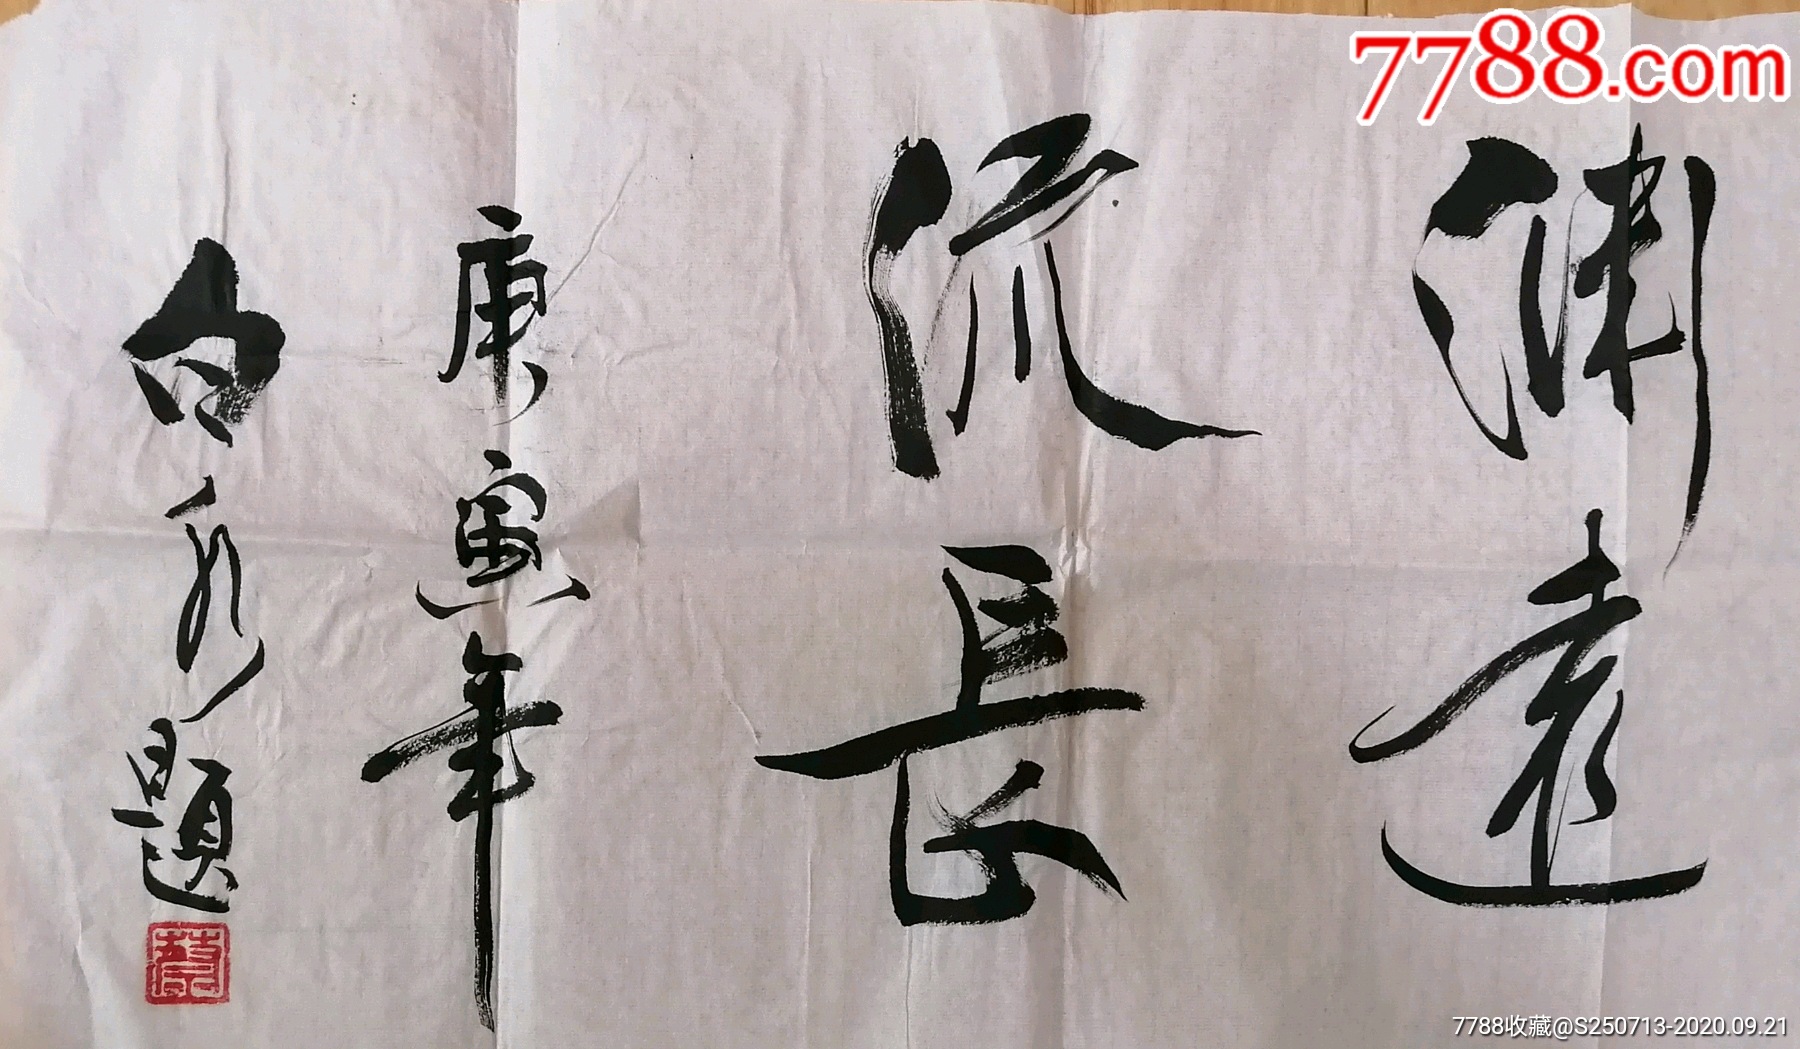 7788.com
渊遠
流長
庚寅年
白永题
7788收藏@S250713-2020.09.21